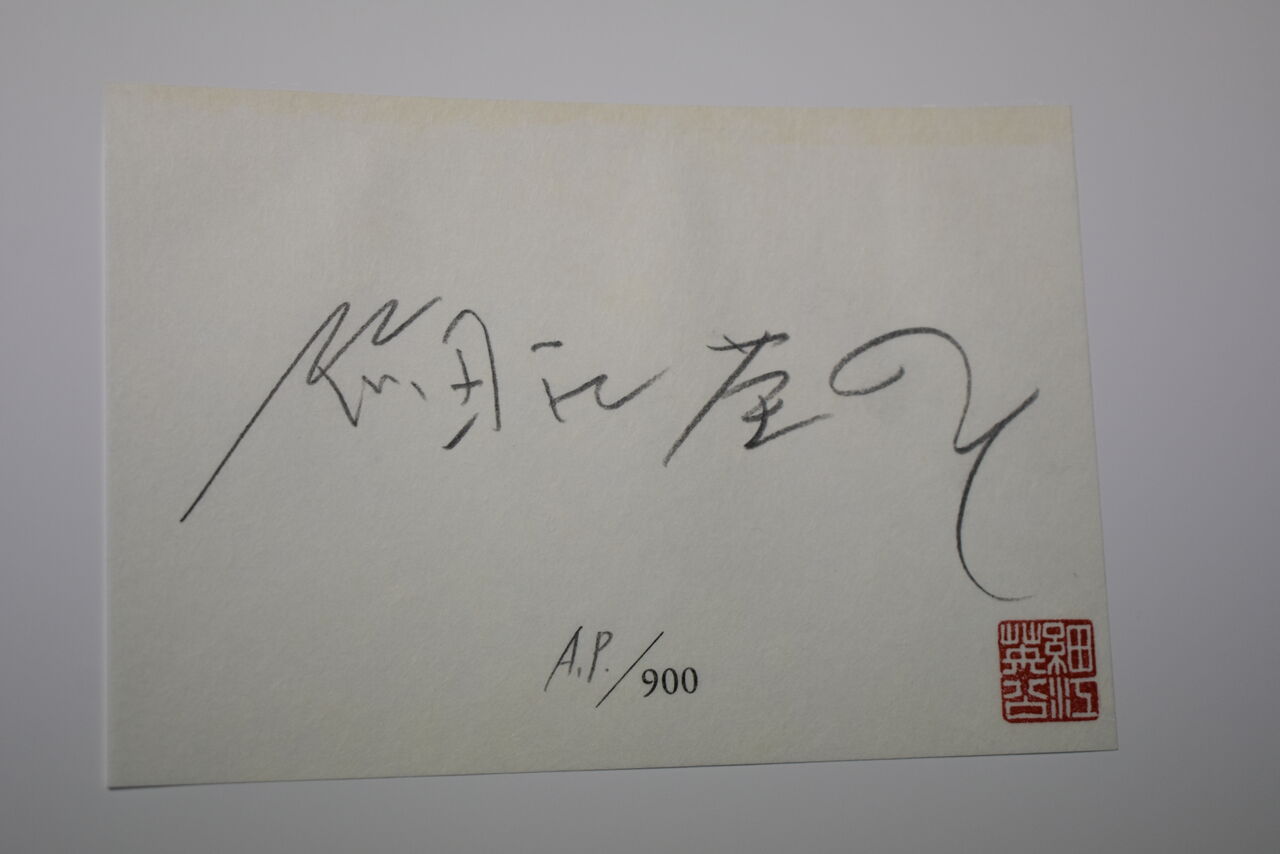 細江英公
A.P./900
細江
英公